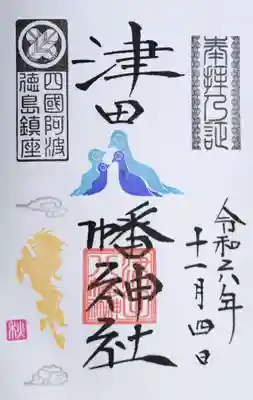 奉拜乃証
令和六年
十一月四日
津田
幡神社
四國阿波
徳島鎮座
秋